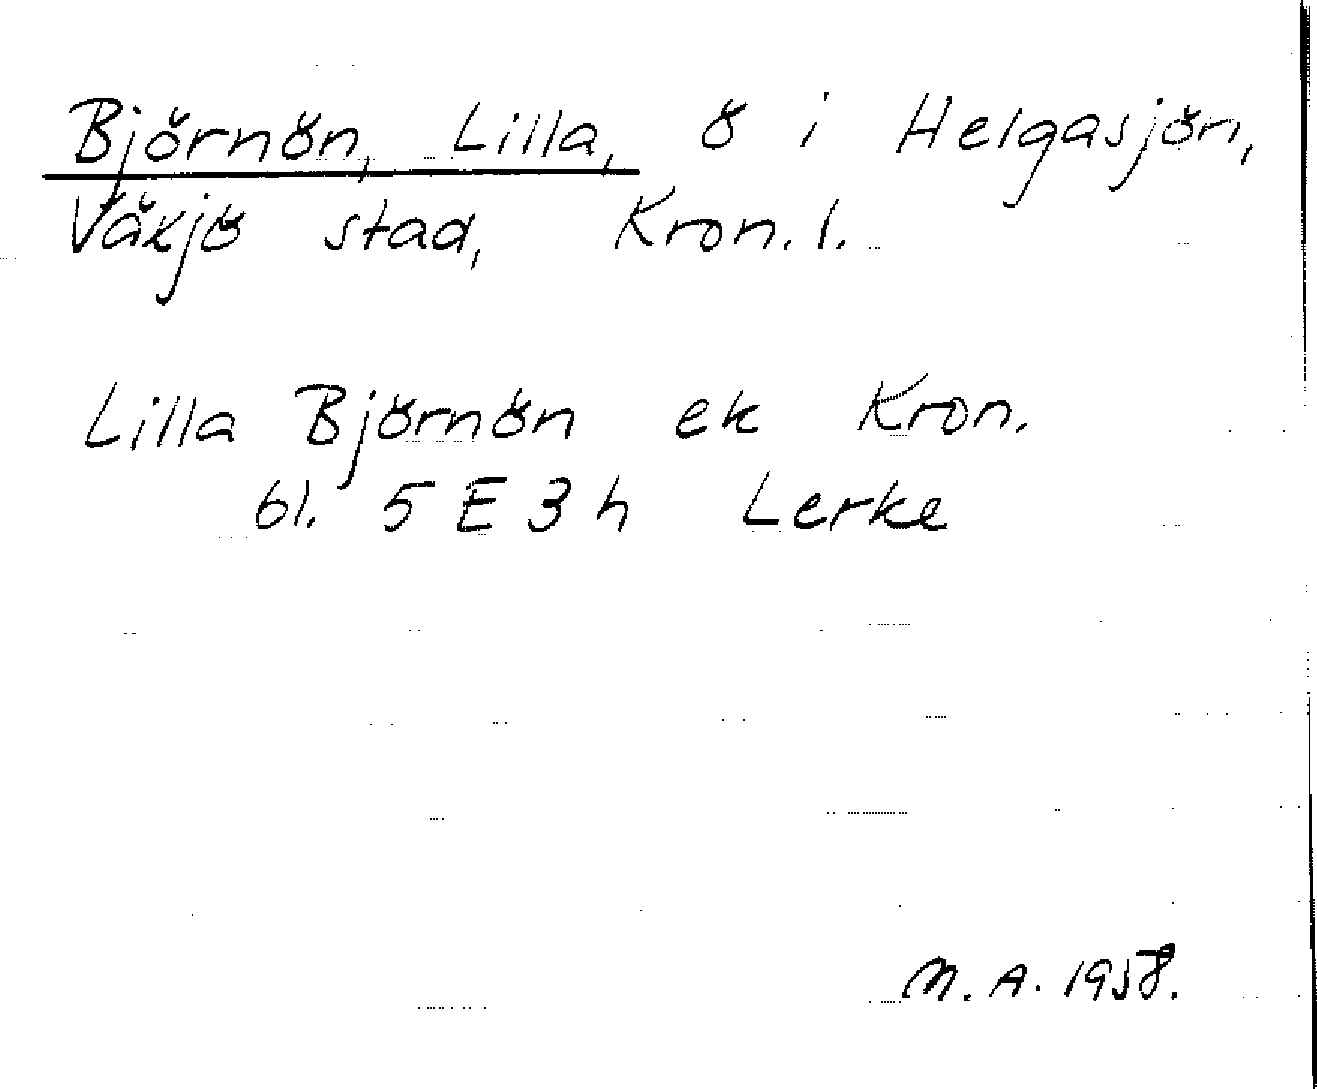 Björnön, Lilla, ö i Helgasjön,
Växjö stad, Kron. l.
Lilla Björnön ek Kron.
bl. 5 E 3 h Lerke
M. A. 1958.